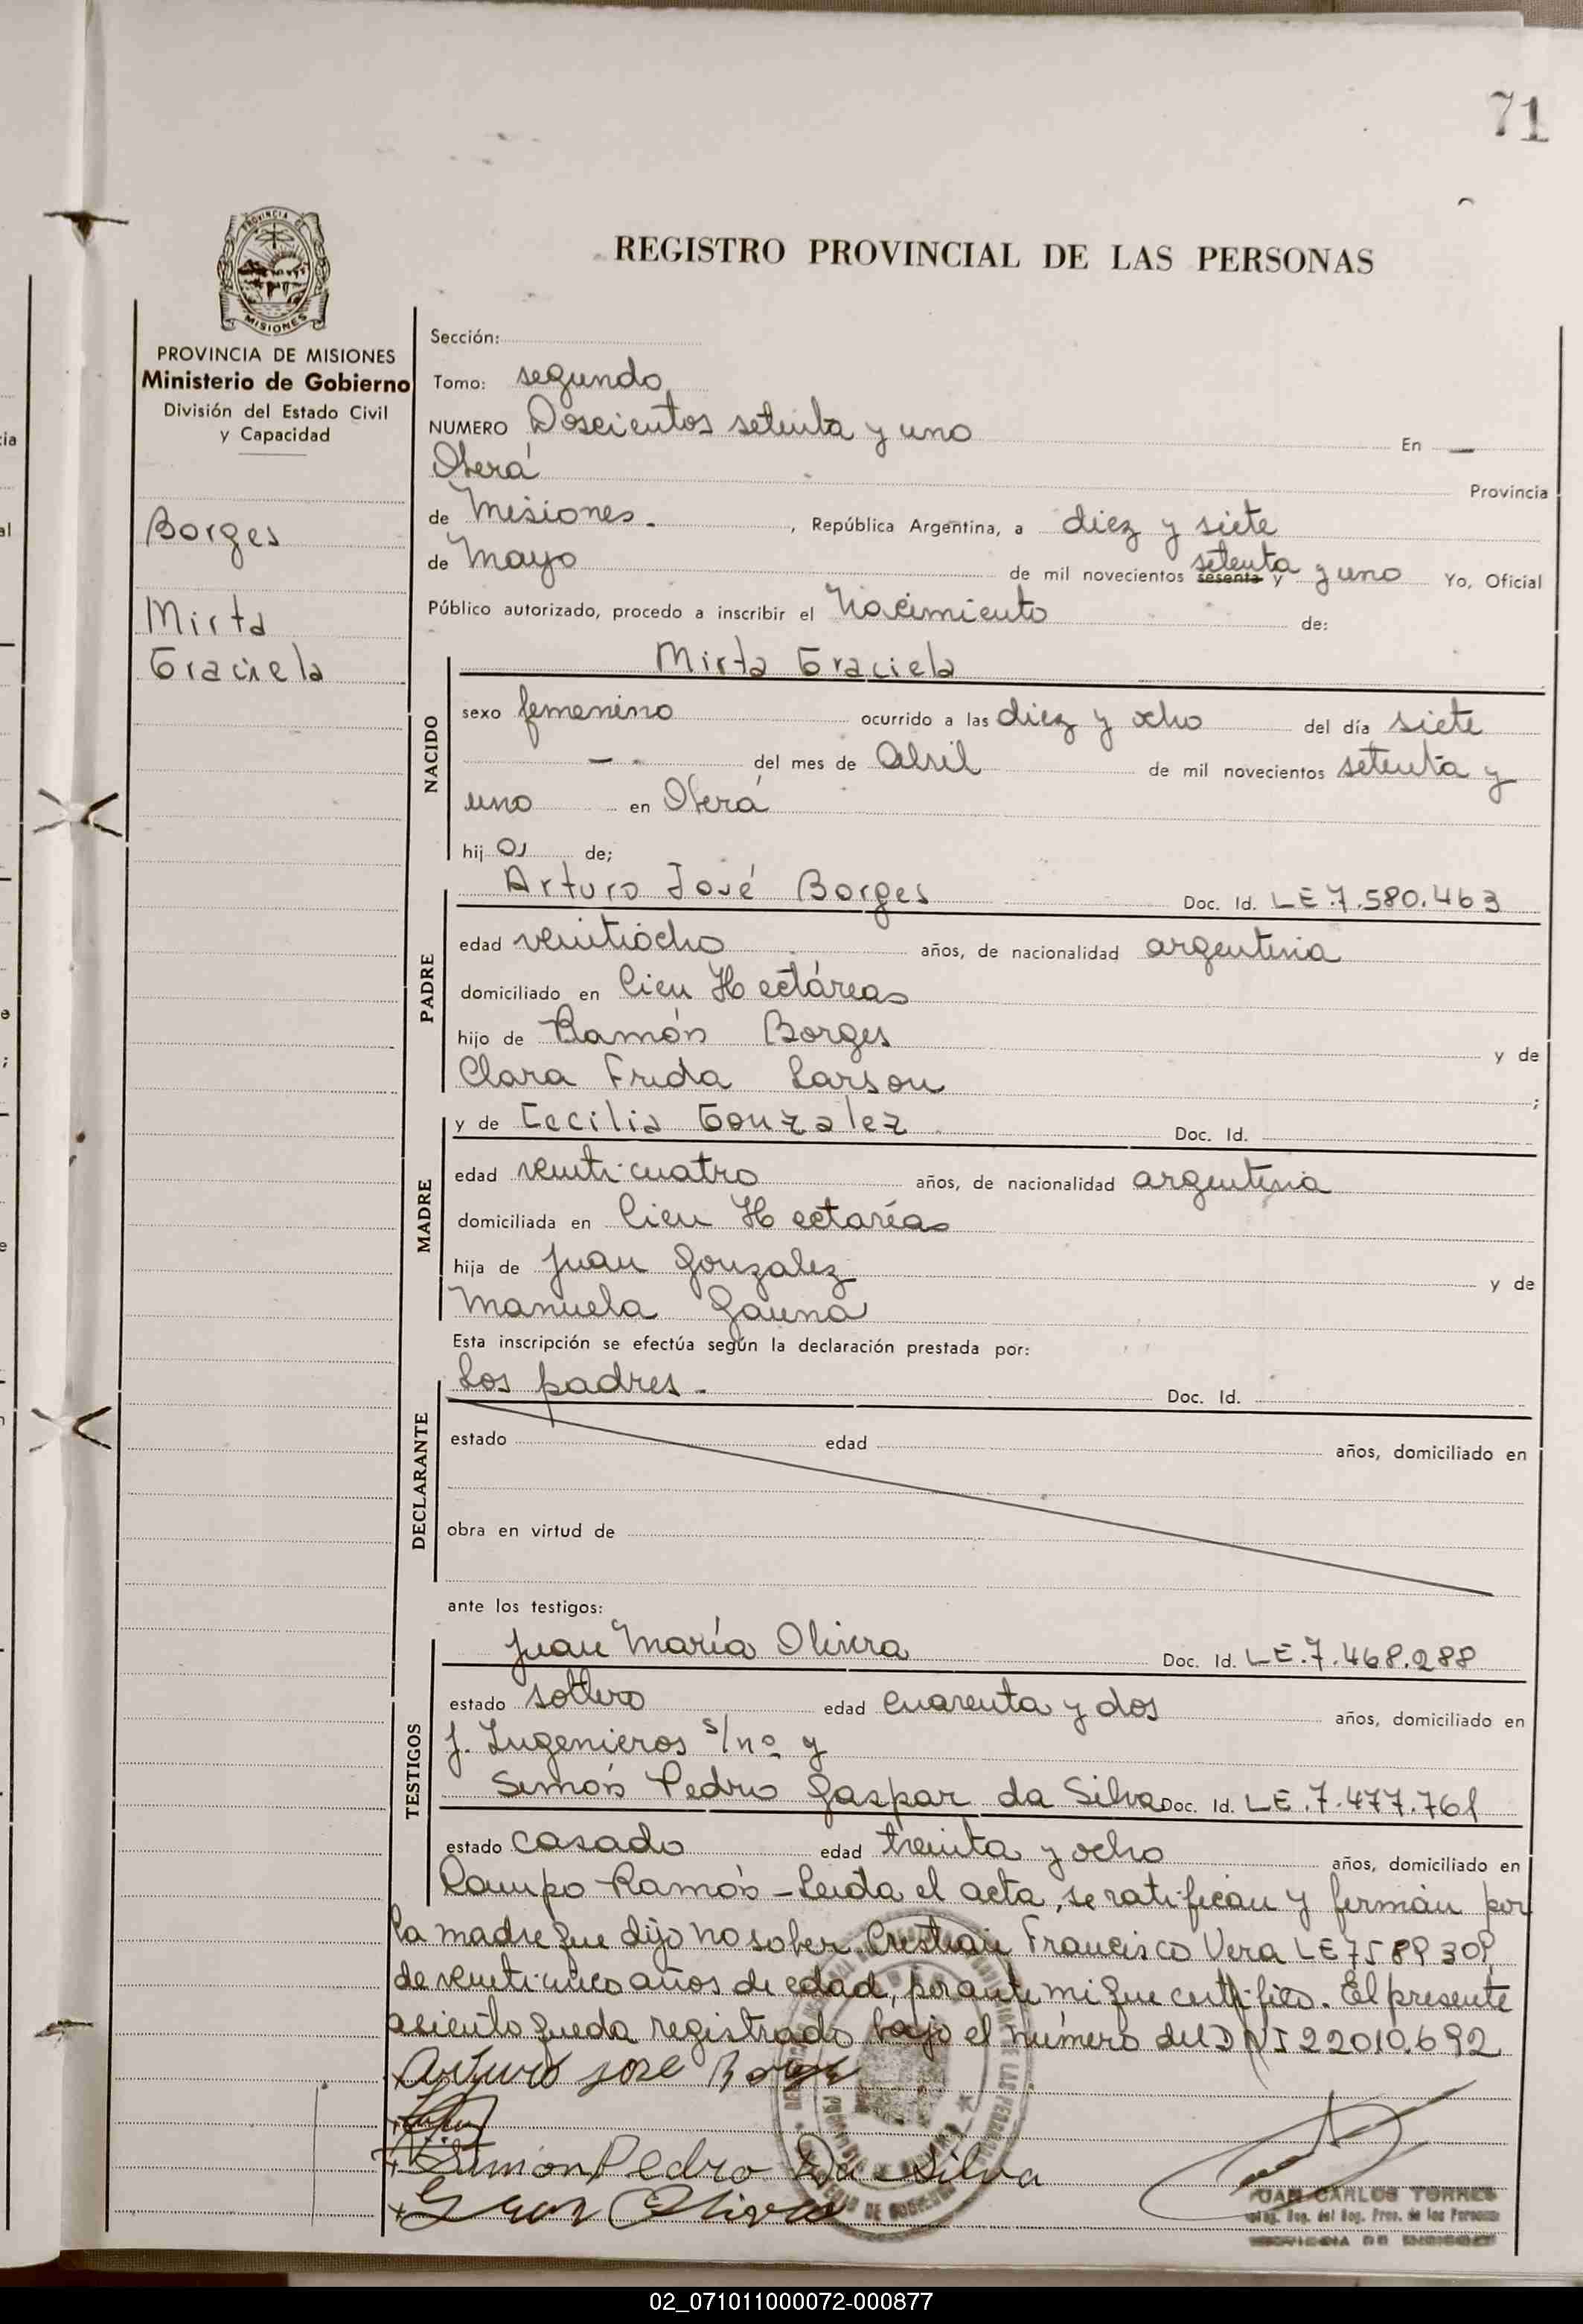 71
REGISTRO PROVINCIAL DE LAS PERSONAS
PROVINCIA DE MISIONES
Ministerio de Gobierno
División del Estado Civil
y Capacidad
Borges
Mirta
Graciela
Sección:
Tomo: segundo
NUMERO Doscientos setenta y uno En —
Oberá Provincia
de Misiones. , República Argentina, a diez y siete
de Mayo de mil novecientos sesenta y setenta y uno Yo, Oficial
Público autorizado, procedo a inscribir el Nacimiento de:
NACIDO
Mirta Graciela
sexo femenino ocurrido a las diez y ocho del día siete
— . del mes de Abril de mil novecientos setenta y
uno en Oberá
hij a de;
PADRE
Arturo José Borges Doc. Id. LE.7.580.463
edad veintiocho años, de nacionalidad argentina
domiciliado en Cien Hectáreas
hijo de Ramón Borges y de
Clara Frida Larson ;
MADRE
y de Cecilia Gonzalez Doc. Id.
edad veinticuatro años, de nacionalidad argentina
domiciliada en Cien Hectareas
hija de Juan Gonzalez y de
Manuela Gauna
Esta inscripción se efectúa según la declaración prestada por:
DECLARANTE
Los padres. Doc. Id.
estado edad años, domiciliado en
obra en virtud de
ante los testigos:
TESTIGOS
Juan María Olivera Doc. Id. LE.7.468.288
estado soltero edad cuarenta y dos años, domiciliado en
J. Ingenieros s/nº y
Simón Pedro Gaspar da Silva Doc. Id. LE.7.477.761
estado casado edad treinta y ocho años, domiciliado en
Campo Ramón - Leída el acta, se ratifican y firman por
la madre que dijo no saber Cristian Francisco Vera LE
de veinticinco años de edad, por ante mi que certifico. El presente
asiento queda registrado bajo el número del DNI 22010.692
Arturo José Borges
Simon Pedro Da Silva
Juan Olivera
JUAN CARLOS TORRES
02_071011000072-000877